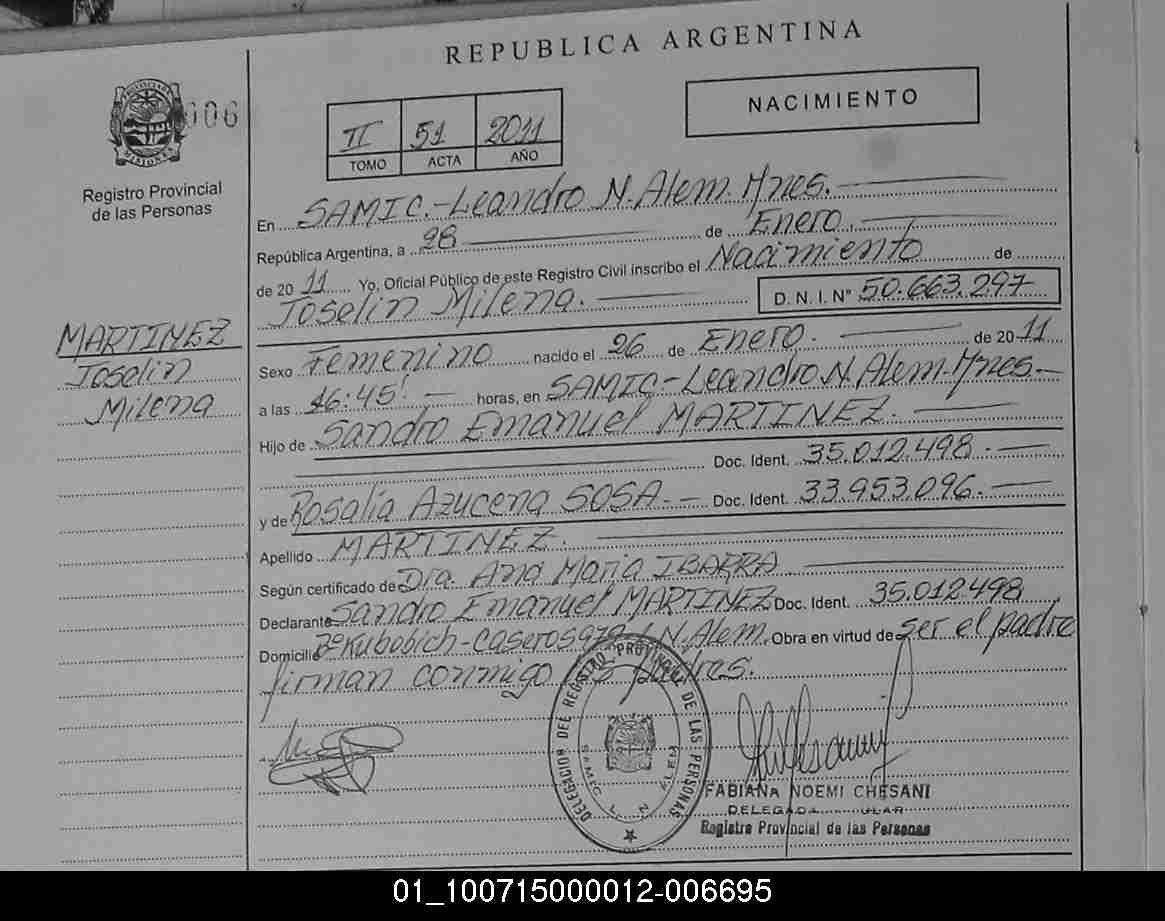 REPUBLICA ARGENTINA
006
NACIMIENTO
II 51 2011
TOMO ACTA AÑO
MISIONES
Registro Provincial
de las Personas
En SAMIC.-Leandro N. Alem. Mnes.
República Argentina, a 28 de Enero.
de 20 11 Yo, Oficial Público de este Registro Civil inscribo el Nacimiento de
Joselin Milena. D. N. I. N° 50.663.297
MARTINEZ
Joselin
Milena
Sexo Femenino nacido el 26 de Enero. de 20 11
a las 16:45' horas, en SAMIC-Leandro N. Alem-Mnes.
Hijo de Sandro Emanuel MARTINEZ.
Doc. Ident. 35.012.498.
y de Rosalía Azucena SOSA. Doc. Ident. 33.953.096.
Apellido MARTINEZ.
Según certificado de Dra. Ana Maria IBARRA
Declarante Sandro Emanuel MARTINEZ Doc. Ident. 35.012.498
Domicilio Bº Kubobich-Caseros N. Alem. Obra en virtud de ser el padre
firman conmigo padres.
DELEGACION DEL REGISTRO PROVINCIAL DE LAS PERSONAS
SAMIC L. N. ALEM
FABIANA NOEMI CHESANI
DELEGADA
Registro Provincial de las Personas
01_100715000012-006695